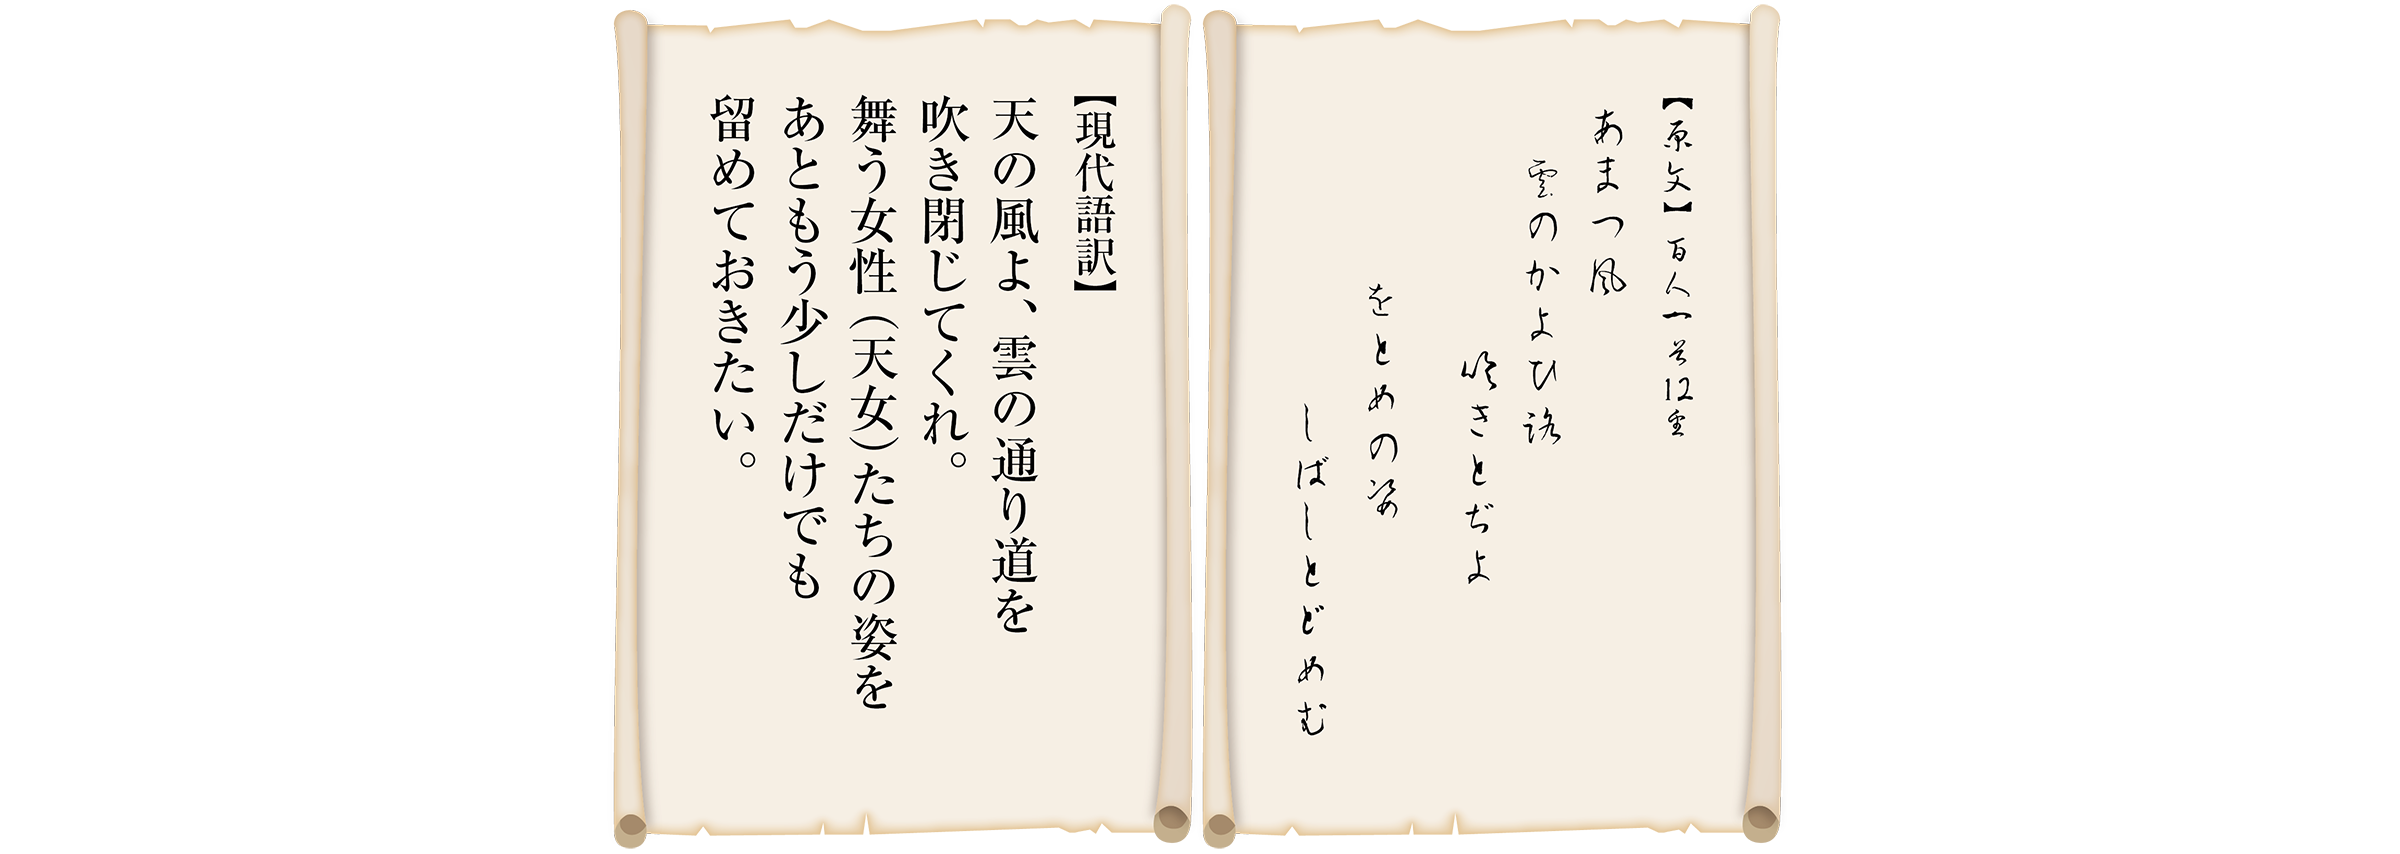 【原文】百人一首12番
あまつ風
雲のかよひ路
吹きとぢよ
をとめの姿
しばしとどめむ
【現代語訳】
天の風よ、雲の通り道を
吹き閉じてくれ。
舞う女性(天女)たちの姿を
あともう少しだけでも
留めておきたい。